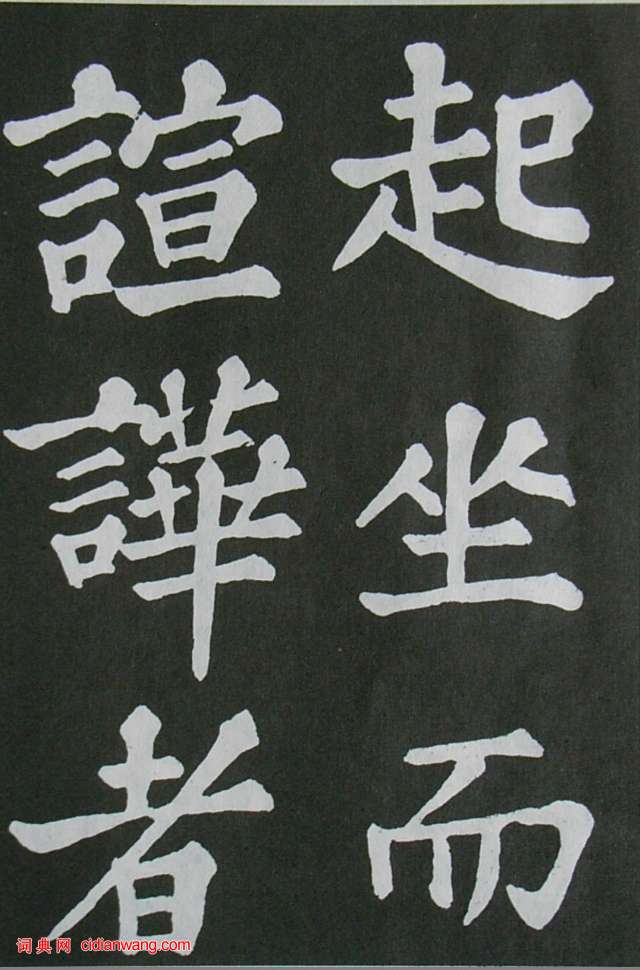 起坐而
諠譁者
词典网 cidianwang.com